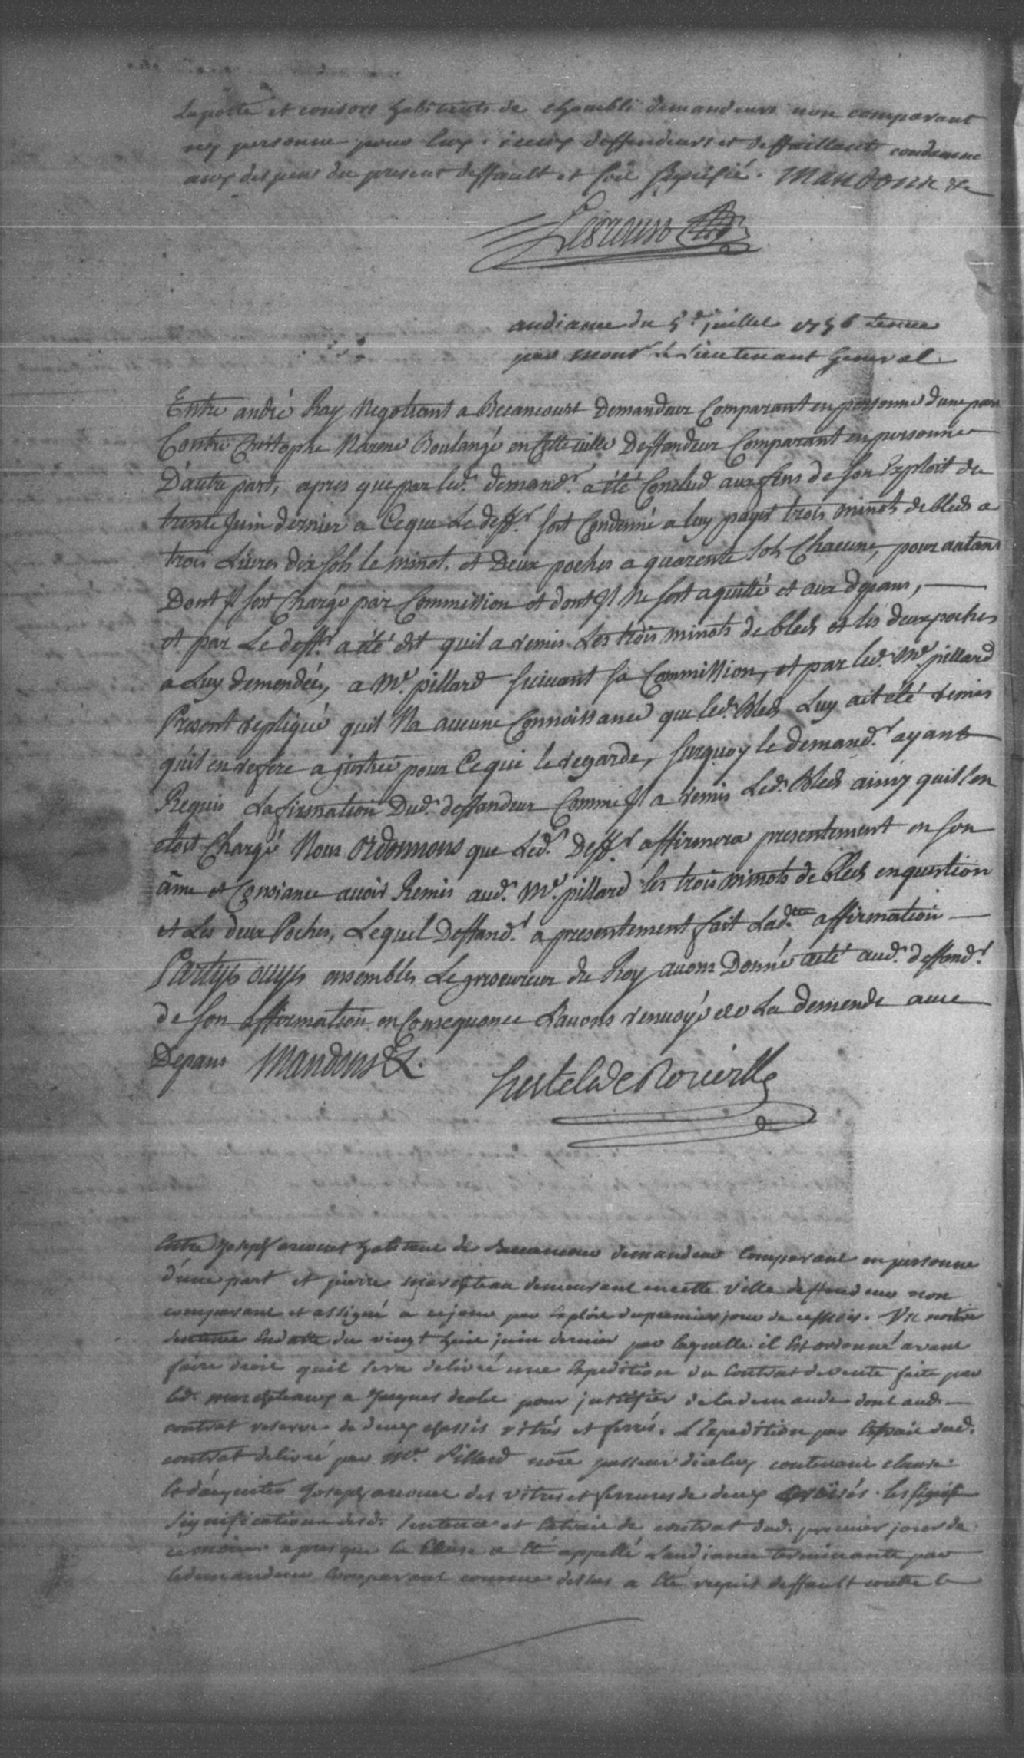 Laporte et consors habitants de Chambli demandeurs non comparant
ny personne pour luy. iceux deffendeurs et deffaillants condamne
aux despens du present deffault et soit signifié. Mandons &c

audiance du 5e juillet 1756 tenue
par Monsr Le Lieutenant General.
Entre andré Ray Negotiant a Becancourt Demandeur Comparant en personne d'une part
Contre Cristophe Boulangé en cette ville Deffendeur Comparant en personne
D'autre part, apres que par led. demandr. a été Conclud aux fins de son Exploit du
trente Juin dernier a Ceque Le deffr. soit Condamné a luy payer trois minots de bled a
trois Livres dix sols le minot. et Deux poches a quarente sols Chacune, pour autant
Dont Il s'est Chargé par Commission et dont Il Ne s'est aquitté et aux depans,
et par Le deffr. a été dit quil a remis Les trois minots de bled et les deux poches
a Luy demendées, a Mr. pillard suivant sa Commission, et par led. Mr. pillard
Present repliqué quil Na aucune Connoissance que led. bled Luy ait été remis
qu'il en refere a justice pour Ce qui le regarde, surquoy le demandr. ayant
Requis Lafirmation Dud. deffendeur Comme Il a remis Led. bled ainsy quil s'en
etoit Chargé Nous Ordonnons que Led. Deffr. affirmera presentement en son
âme et Consiance avoir Remis aud. Mr. pillard les trois minots de bled en question
et Les deux Poches, Lequel Deffandr. a presentement fait Ladte affirmation
Partys ouys ensembles Le procureur du Roy avons Donné acte aud. deffendr.
de son affirmation en Consequence L'avons renvoyé de La demende avec
Depans Mandons &c.
hertel de Rouville
Entre Joseph habitant de demandeur Comparant en personne
d'une part et pierre demeurant en cette ville deffendeur non
comparant et assigné a ce jour par Exploit du premier jour de ce mois. Vu notre
sentence en datte du vingt huit juin dernier par laquelle il est ordonné avant
faire droit quil sera delivré une Expedition du Contrat de vente faite par
led. a Jacques pour justifier de la demande dont aud.
contrat reserve de deux chassis vitrés et ferrés. L'Expedition par Extrait dud.
contrat delivré par Mr. Pillard nore passeur diceluy contenant clause
Joseph des vitres et ferrures de deux les
signification desd. sentence et Extrait de contrat dud. premier jour de
ce mois apres que la Cause a été appellé L'audiance terminante par
le demandeur Comparant comme dessus a été requis deffault contre le